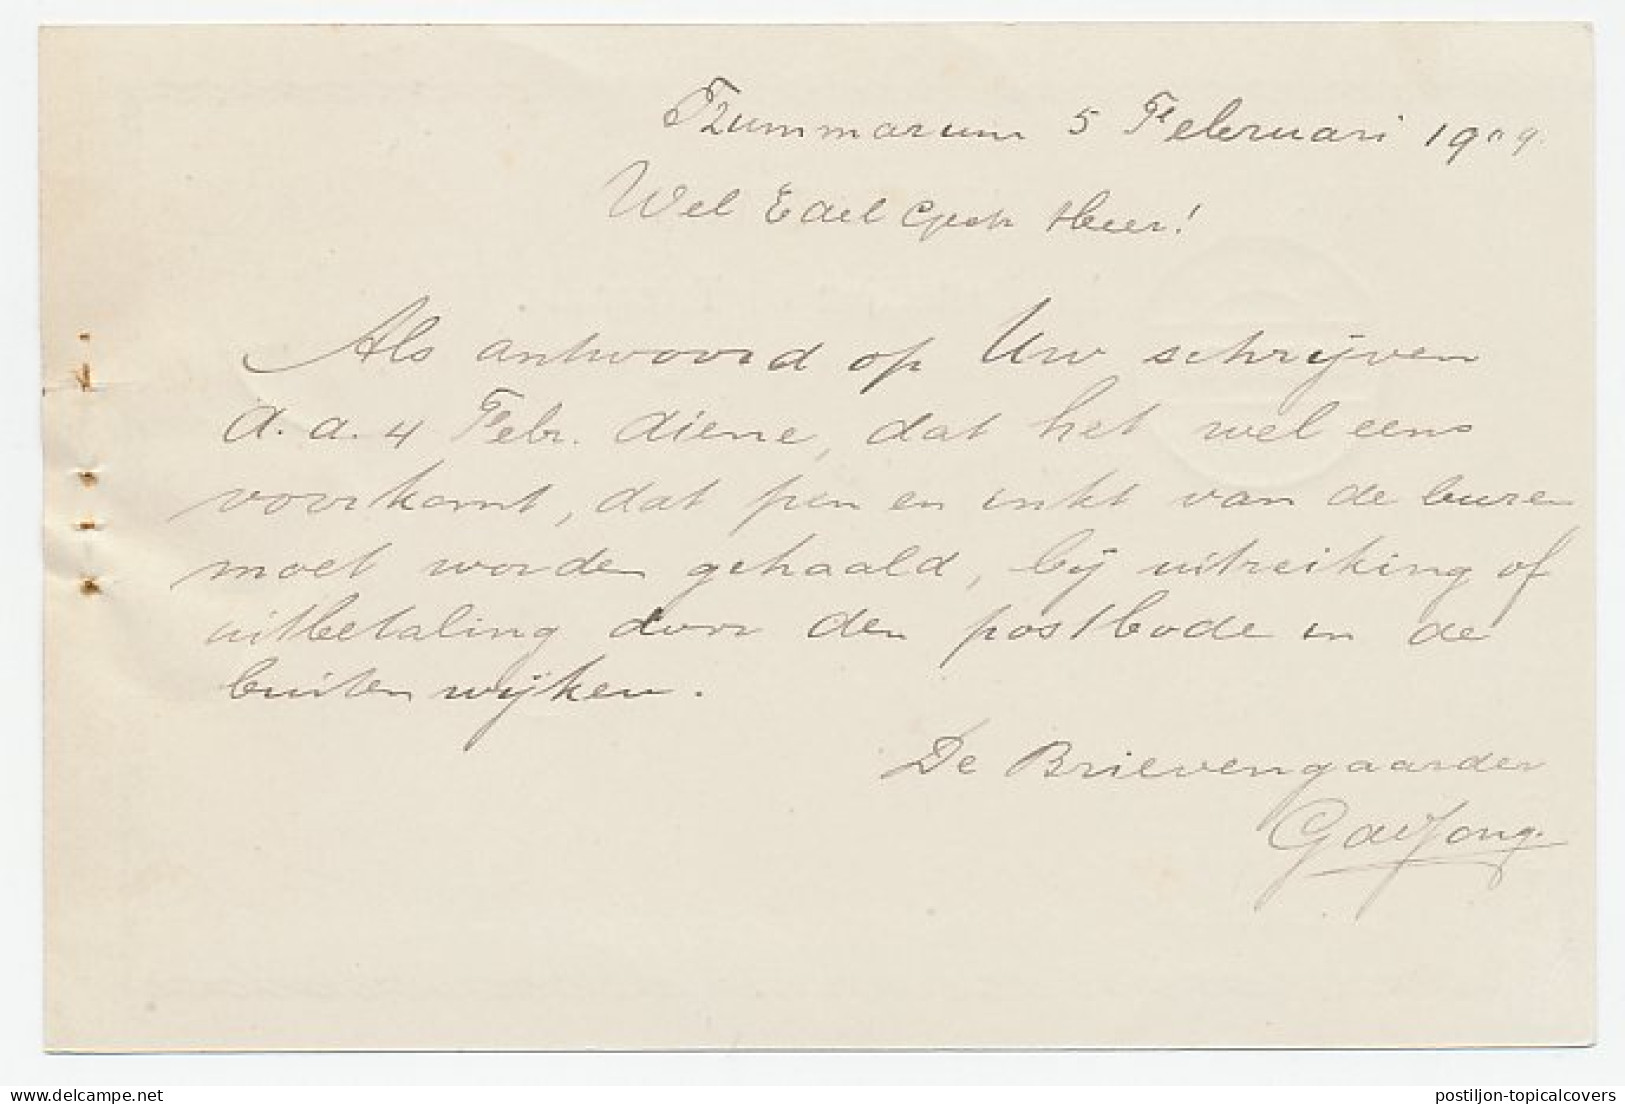 Tzummarum 5 Februari 1909.
Wel Edel Gestr Heer!
Als antwoord op Uw schrijven
d.a. 4 Febr. diene, dat het wel eens
voorkomt, dat pen en inkt van de buren
moet worden gehaald, bij uitreiking of
uitbetaling door den postbode in de
buitenwijken.
De Brievengaarder
G de Jong.
delcampe.net
postiljon-topicalcovers